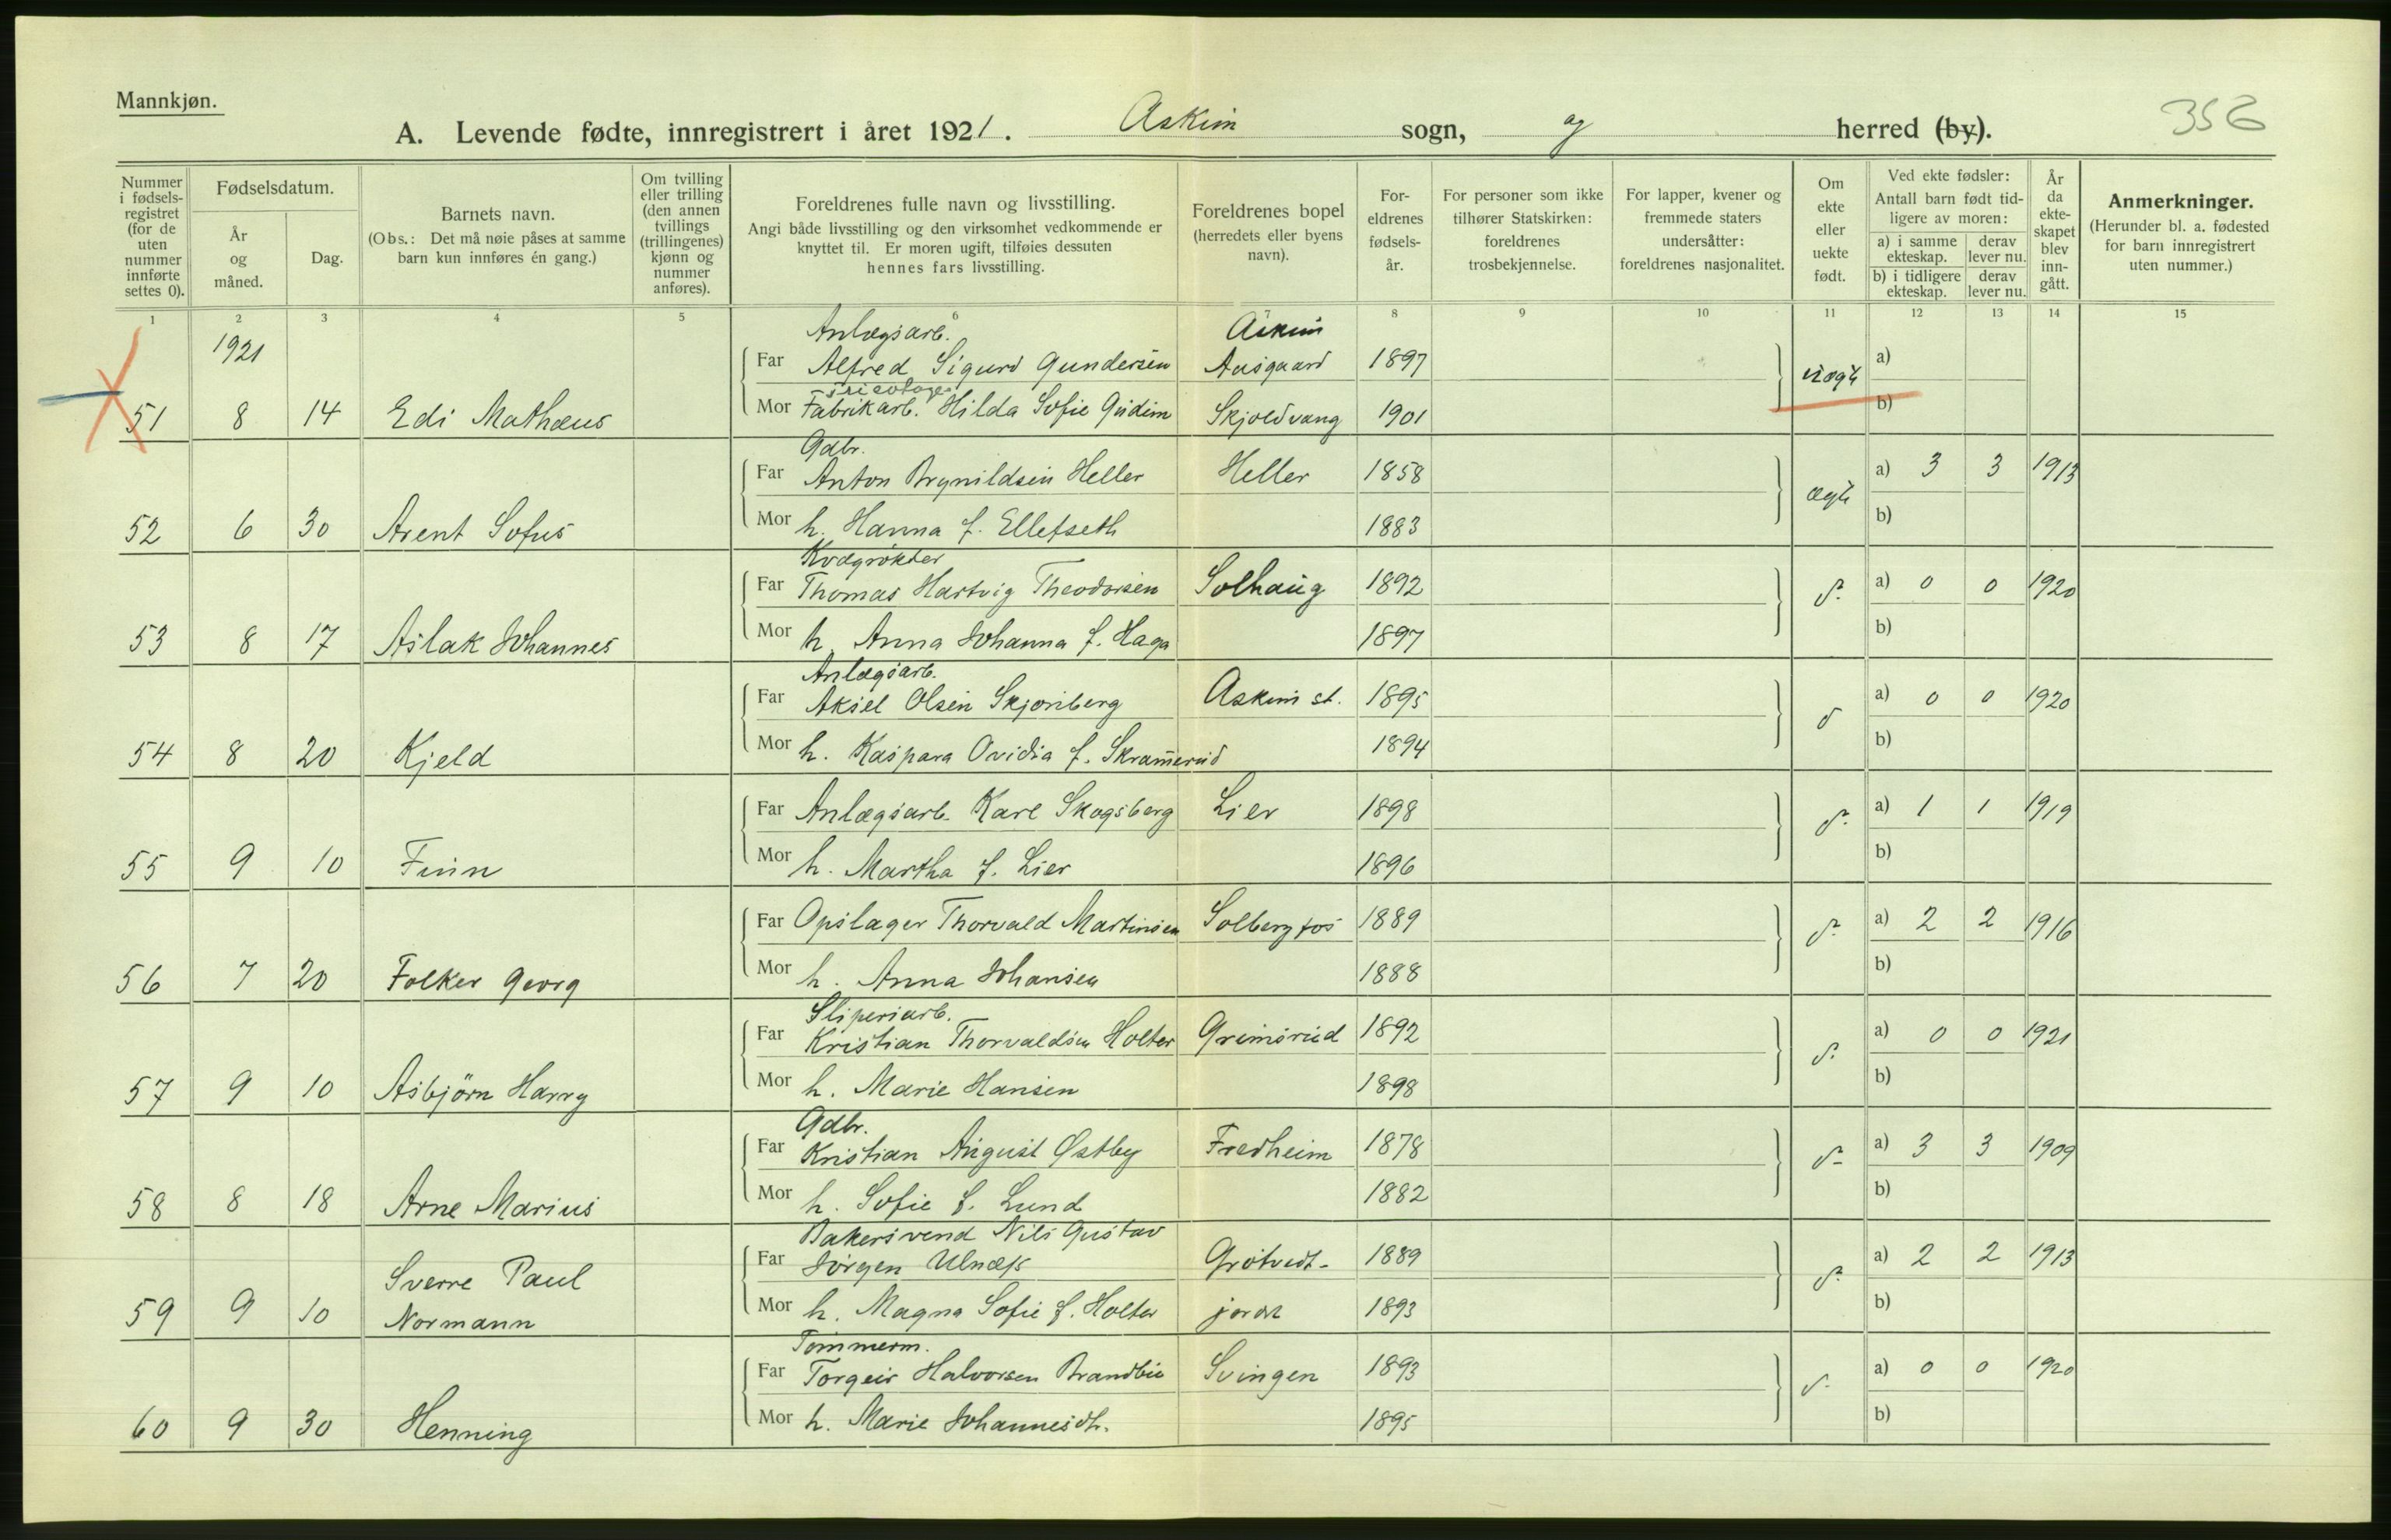 Mannkjøn.
356
A. Levende fødte, innregistrert i året 1921. Askim sogn, og herred (by).
Nummer i fødsels-registret (for de uten nummer innførte settes 0).
Fødselsdatum.
År og måned.
Dag.
Barnets navn.
(Obs.: Det må nøie påses at samme barn kun innføres én gang.)
Om tvilling eller trilling (den annen tvillings (trillingenes) kjønn og nummer anføres).
Foreldrenes fulle navn og livsstilling.
Angi både livsstilling og den virksomhet vedkommende er knyttet til. Er moren ugift, tilføies dessuten hennes fars livsstilling.
Foreldrenes bopel (herredets eller byens navn).
For-eldrenes fødsels-år.
For personer som ikke tilhører Statskirken: foreldrenes trosbekjennelse.
For lapper, kvener og fremmede staters undersåtter: foreldrenes nasjonalitet.
Om ekte eller uekte født.
Ved ekte fødsler: Antall barn født tid-ligere av moren:
a) i samme ekteskap. derav lever nu.
b) i tidligere ekteskap. derav lever nu.
År da ekte-skapet blev inn-gått.
Anmerkninger.
(Herunder bl. a. fødested for barn innregistrert uten nummer.)
1 2 3 4 5 6 7 8 9 10 11 12 13 14 15
1921 Anlægsarb. Askim
Far Alfred Sigurd Gundersen Aasgaard 1897 uægte a)
Tricotage
51 8 14 Edi Mathæus Mor Fabrikarb. Hilda Sofie Gudim Skjoldvang 1901 b)
Gdbr.
Far Anton Brynildsen Heller Heller 1858 ægte a) 3 3 1913
52 6 30 Arent Sofus Mor h. Hanna f. Ellefseth 1883 b)
Kvægrökter
Far Thomas Hartvig Theodorsen Solhaug 1892 d. a) 0 0 1920
53 8 17 Aslak Johannes Mor h. Anna Johanna f. Haga 1897 b)
Anlægsarb.
Far Aksel Olsen Skjønberg Askim st. 1895 d a) 0 0 1920
54 8 20 Kjeld Mor h. Kaspara Ovidia f. Skramerud 1894 b)
Far Anlægsarb. Karl Skogsberg Lier 1898 d. a) 1 1 1919
55 9 10 Finn Mor h. Martha f. Lier 1896 b)
Far Opslager Thorvald Martinsen Solbergfos 1889 d. a) 2 2 1916
56 7 20 Folker Georg Mor h. Anna Johansen 1888 b)
Sliperiarb.
Far Kristian Thorvaldsen Holter Grimsrud 1892 d. a) 0 0 1921
57 9 10 Asbjörn Harry Mor h. Marie Hansen 1898 b)
Gdbr.
Far Kristian August Østby Fredheim 1878 d. a) 3 3 1909
58 8 18 Arne Marius Mor h. Sofie f. Lund 1882 b)
Bakersvend Nils Gustav
Sverre Paul Far Jörgen Ulnæss Grötvedt- 1889 d. a) 2 2 1913
59 9 10 Normann Mor h. Magna Sofie f. Holter jordet 1893 b)
Tömmerm.
Far Torgeir Halvorsen Brandbu Svingen 1893 d. a) 0 0 1920
60 9 30 Henning Mor h. Marie Johannesdtr. 1895 b)